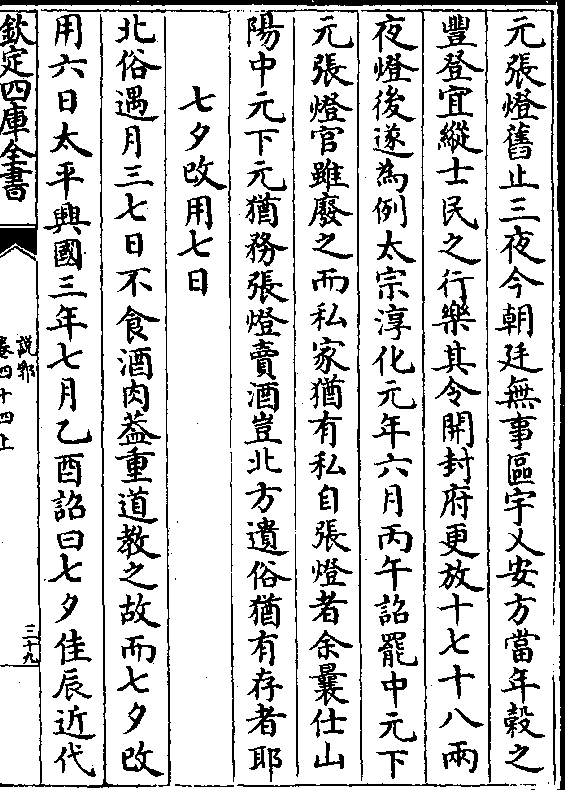 元張燈舊止三夜今朝廷無事區宇乂安方當年榖之
豐登宜縱士民之行樂其令開封府更放十七十八兩
夜燈後遂為例太宗淳化元年六月丙午詔罷中元下
元張燈官雖廢之而私家猶有私自張燈者余曩仕山
陽中元下元猶務張燈賣酒豈北方遺俗猶有存者耶
七夕改用七日
北俗遇月三七日不食酒肉葢重道教之故而七夕改
用六日太平興國三年七月乙酉詔曰七夕佳辰近代
欽定四庫全書
說郛
卷四十四上
三十九